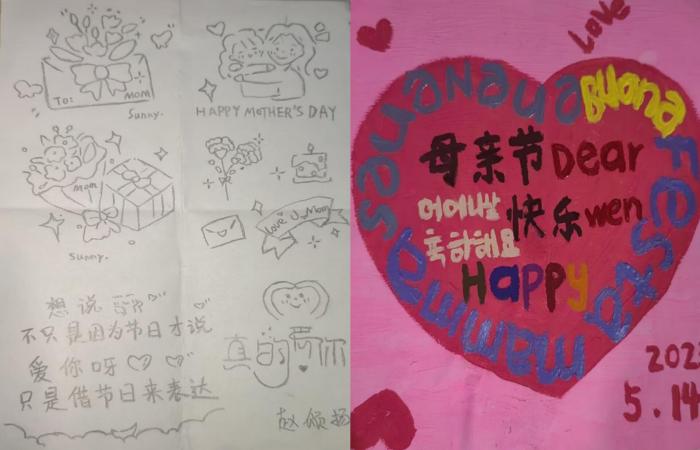 TO: MOM
Sunny.
HAPPY MOTHER'S DAY
Mom
Sunny.
Love U Mom
想说
不只是因为节日才说
爱你呀
只是借节日来表达
真的爱你
赵颂扬
LOVE
Buona Festa mamma
母亲节Dear
快乐wen
축하해요
Happy
202
5.14